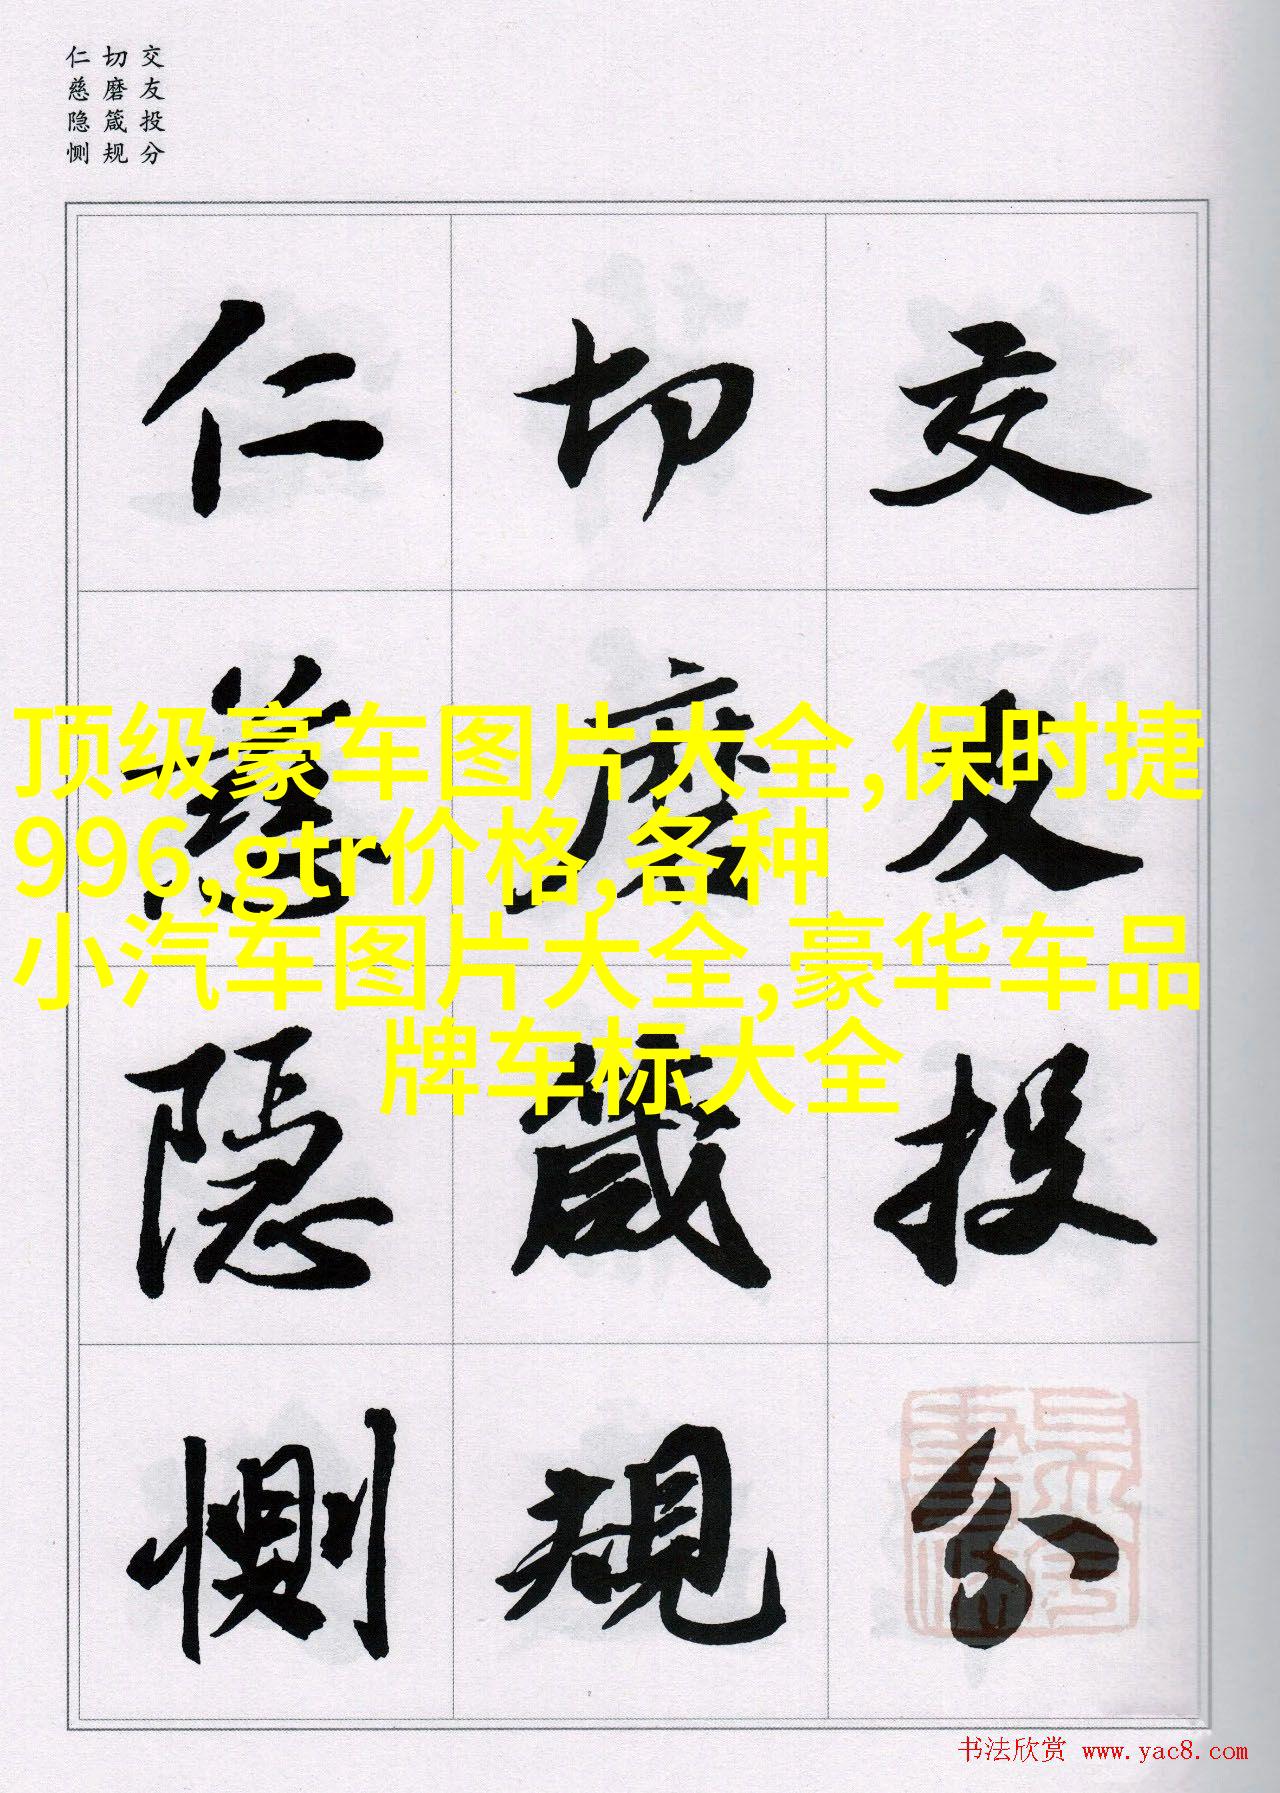 交友投分
切磨箴规
仁慈隐恻
交友投分
切磨箴規
仁慈隐惻
顶级豪车图片大全,保时捷
996,gtr价格,各种
小汽车图片大全,豪华车品
牌车标大全
书法欣赏 www.yac8.com